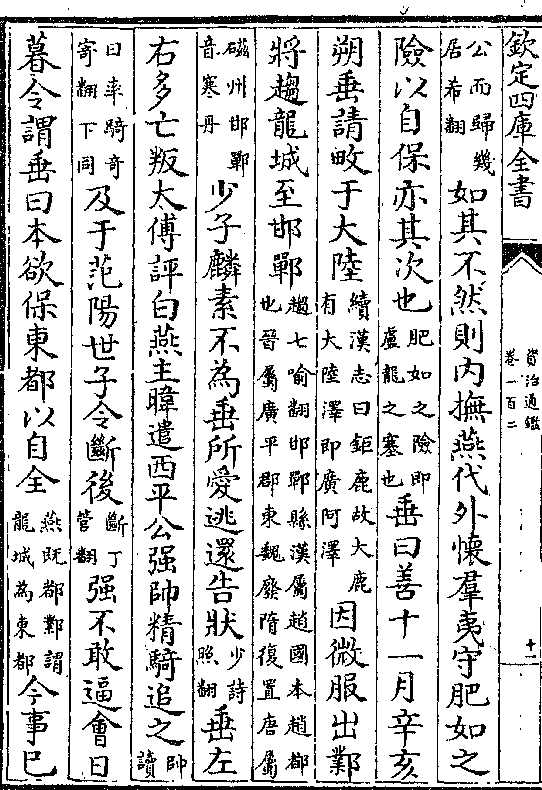 欽定四庫全書
資治通鑑
卷一百二
十一
公而歸幾
居希翻
如其不然則内撫燕代外懷羣夷守肥如之
險以自保亦其次也
肥如之險即
盧龍之塞也
垂曰善十一月辛亥
朔垂請畋于大陸
續漢志曰鉅鹿故大鹿
有大陸澤即廣阿澤
因微服出鄴
將趨龍城至邯鄲
趨七喻翻邯鄲縣漢屬趙國本趙都
也晉屬廣平郡東魏廢隋復置唐屬
磁州邯鄲
音寒丹
少子麟素不為垂所愛逃還告狀
少詩
照翻
垂左
右多亡叛太傅評白燕主暐遣西平公强帥精騎追之
帥
讀
曰率騎奇
寄翻下同
及于范陽世子令斷後
斷丁
管翻
强不敢逼會日
暮令謂垂曰本欲保東都以自全
燕既都鄴謂
龍城為東都
今事已